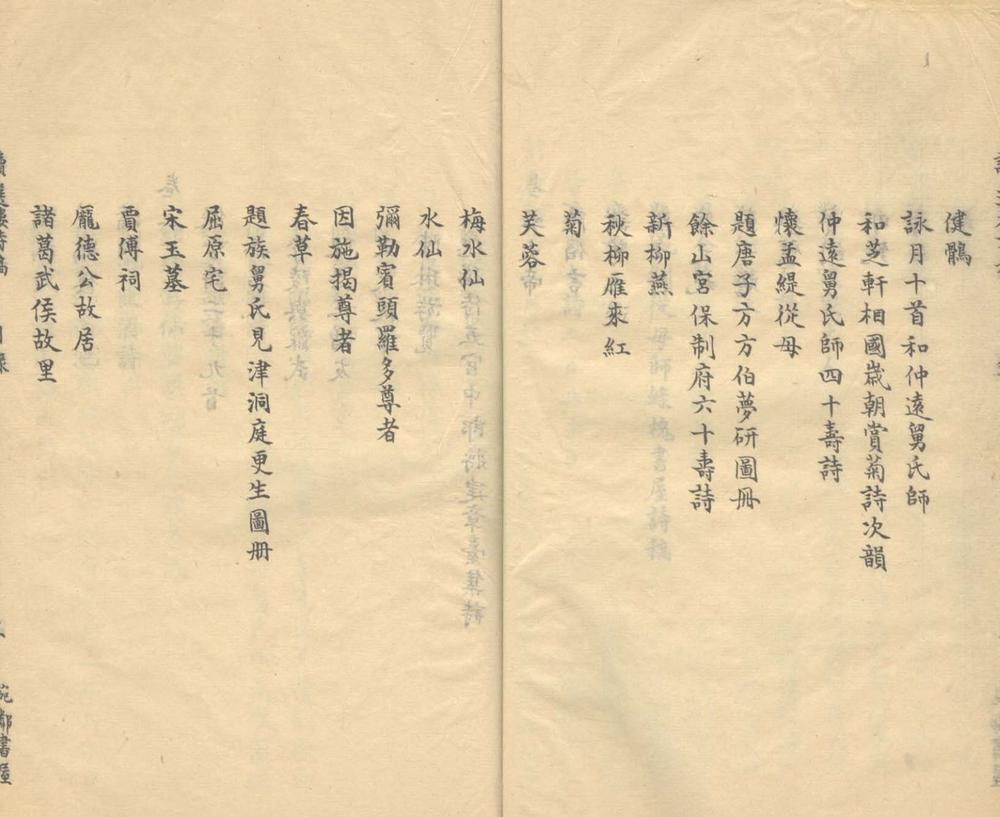 健鶻
詠月十首和仲遠舅氏師
和芝軒相國嵗朝賞菊詩次韻
仲遠舅氏師四十壽詩
懷孟緹從母
題唐子方方伯夢硏圖冊
餘山宮保制府六十壽詩
新柳燕
秋柳雁來紅
菊
芙蓉
梅水仙
水仙
彌勒賓頭羅多尊者
因施揭尊者
春草
題族舅氏見津洞庭更生圖冊
屈原宅
宋玉墓
賈傅祠
龐德公故居
諸葛武侯故里
宛鄰書屋